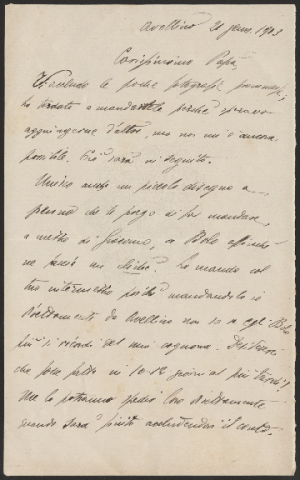 Avellino 20 genn. 1903
Carissimo Papà,
le poche fotografie
ho tardato a mandartele perchè speravo
aggiungerne d'altre, ma non mi è ancora
possibile. Ciò sarà in seguito.
Unisco anche un piccolo disegno a
penna che ti prego di far mandare,
a mezzo di a Bolo affinchè
ne un clichè. Lo mando col
tuo intermedio poichè mandandolo io
direttamente da Avellino non so se egli
più si ricordi del mio cognome.
che sia fatto in 10-12 giorni al più tardi!
Me lo potranno spedire loro direttamente
quando sarà finito accludendo il conto.